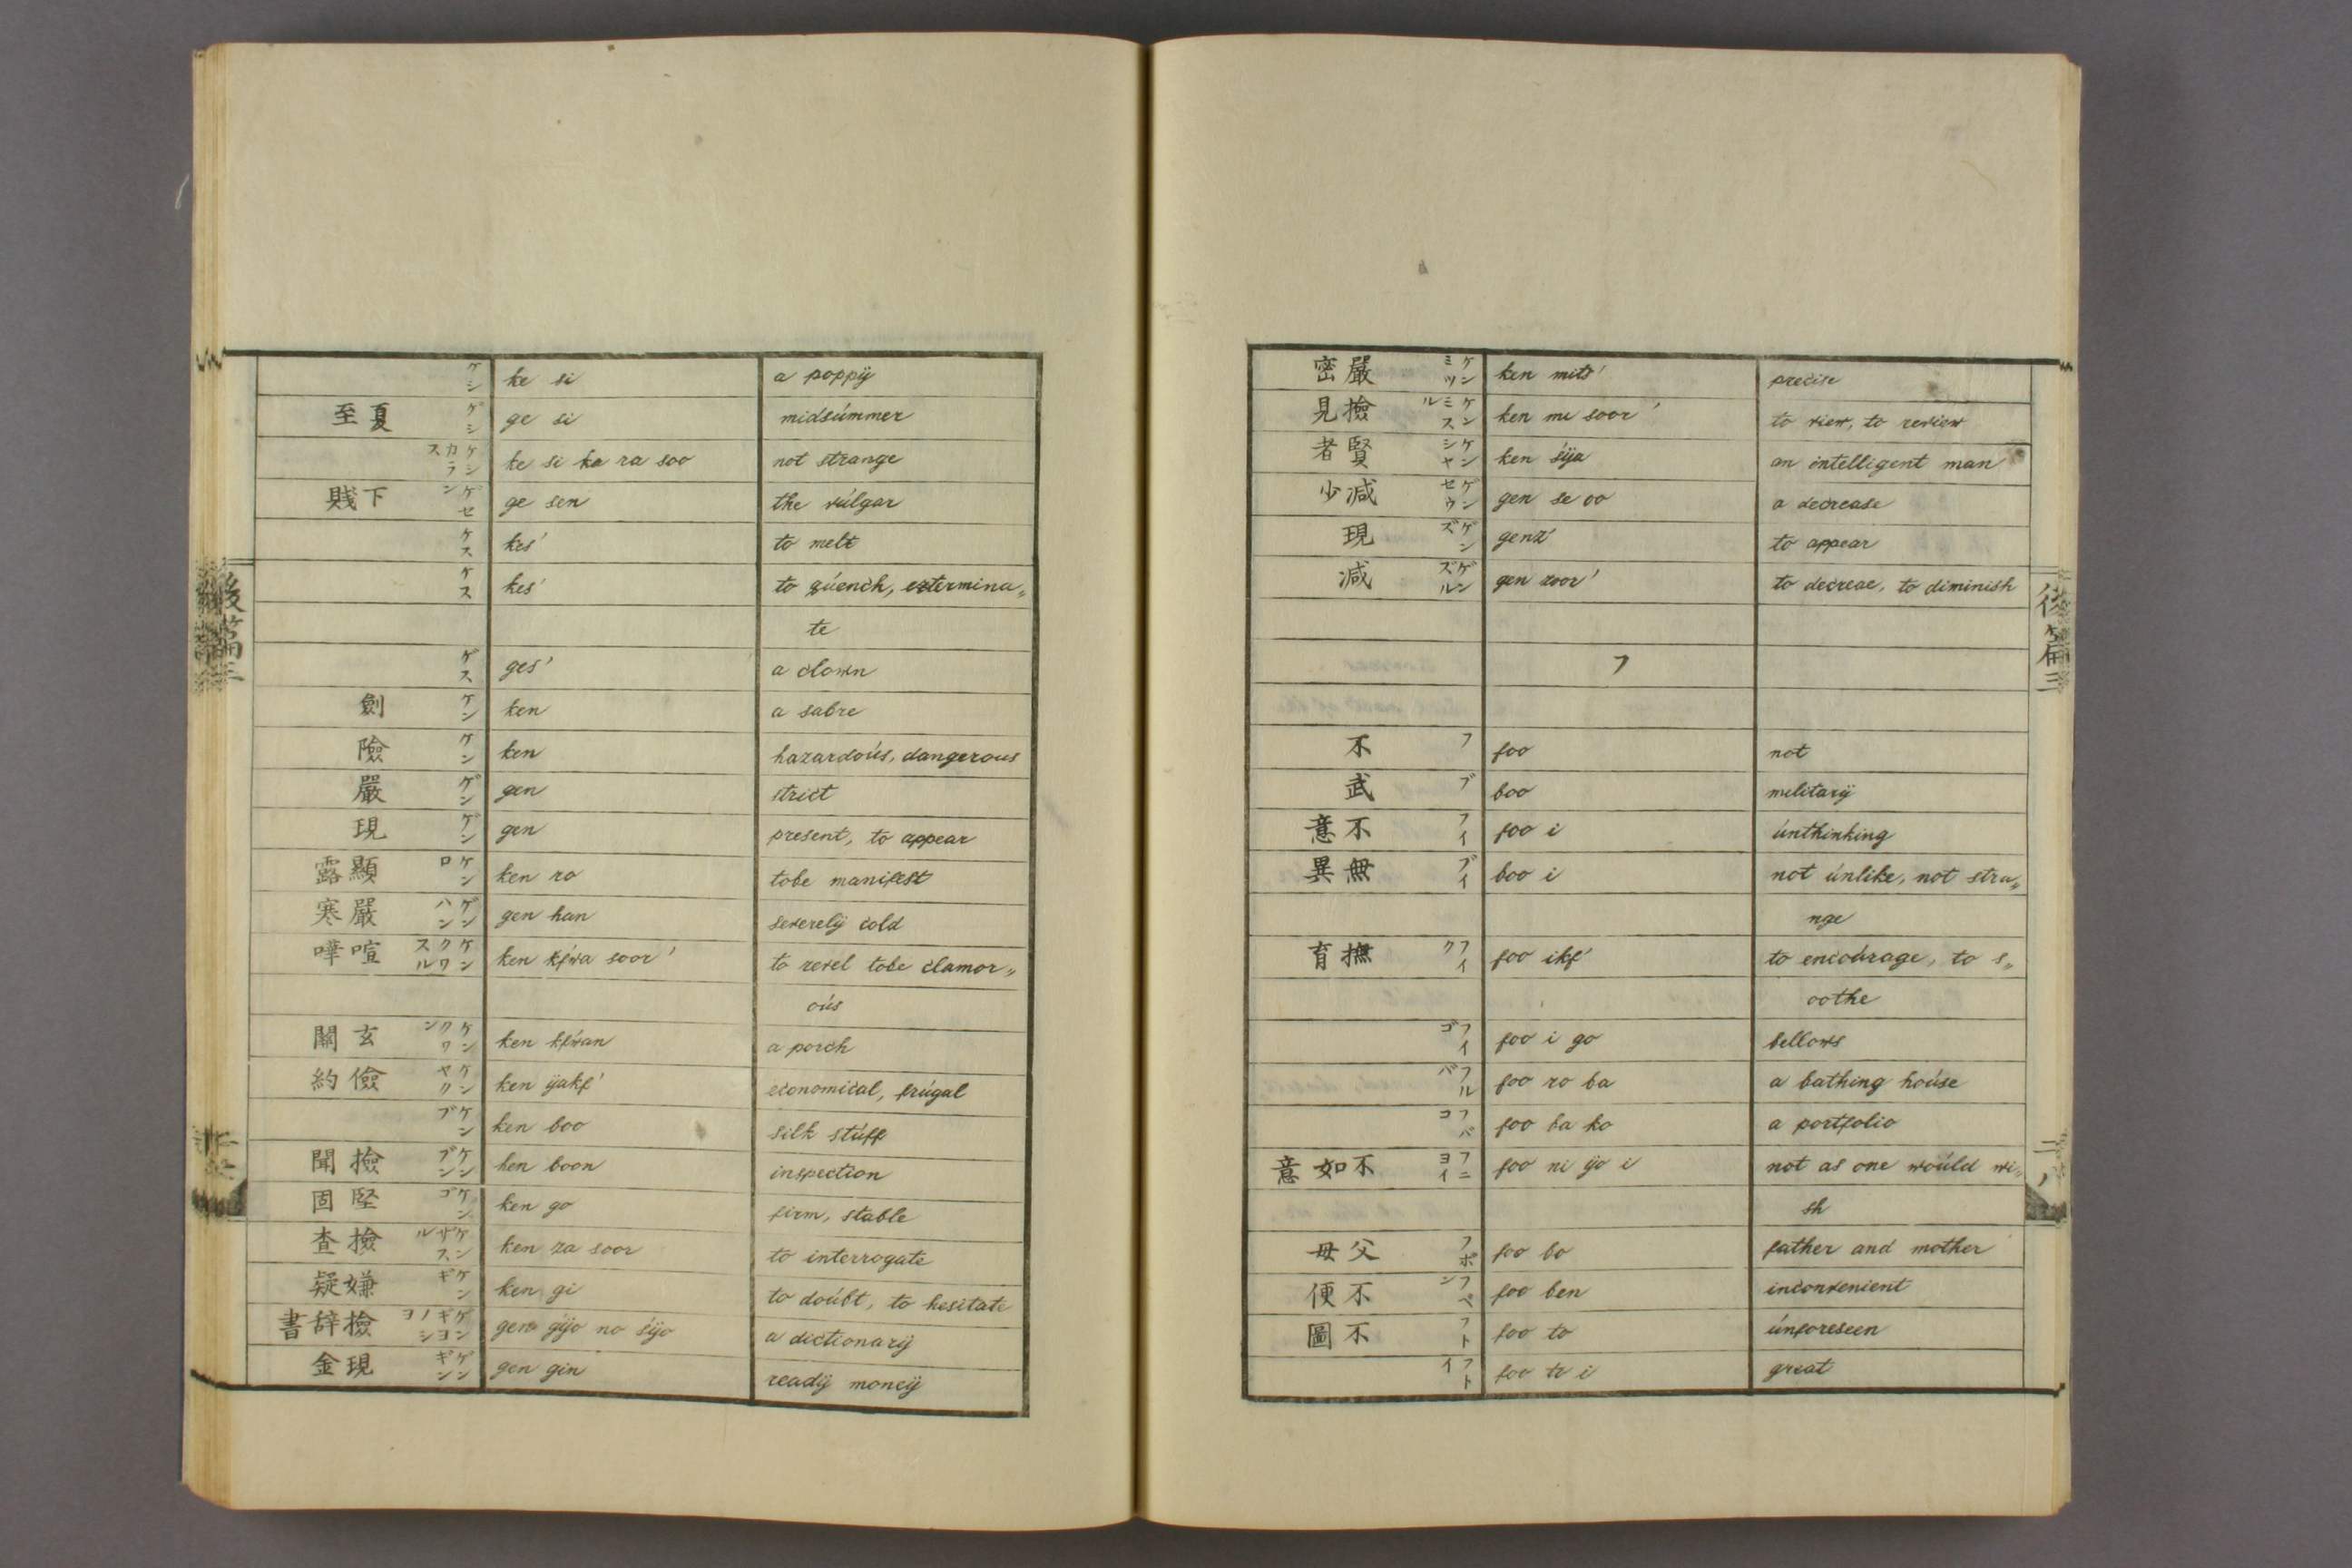 ケシ ke si a poppÿ
至夏 ゲシ ge si midsúmmer
ケシカラス ke si ka ra soo not strange
賎下 ゲセン ge sen the vúlgar
ケス kes' to melt
ケス kes' to qúench, extermina„
te
ゲス ges' a clown
劍 ケン ken a sabre
險 ケン ken hazardoús, dangerous
嚴 ゲン gen strict
現 ゲン gen present, to appear
露顯 ケンロ ken ro tobe manifest
寒嚴 ゲンハン gen han severelÿ cold
嘩喧 ケンクワスル ken kfwa soor' to revel tobe clamor„
oús
關玄 ケンクワン ken kfwan a porch
約儉 ケンヤク ken ÿakf' economical, frúgal
ケンブ ken boo silk stúff
聞撿 ケンブン ken boon inspection
固堅 ケンゴ ken go firm, stable
査撿 ケンザスル ken za soor to interrogate
疑嫌 ケンギ ken gi to doúbt, to hesitate
書辞撿 ゲンギヨノシヨ gen gÿo no sÿo a dictionarÿ
金現 ゲンギン gen gin readÿ moneÿ
後篇三
密嚴 ケンミツ ken mits' precise
見撿 ケンミスル ken mi soor' to view, to review
者賢 ケンシヤ ken sÿa an intelligent man
少減 ゲンセウ gen se oo a decrease
現 ゲンズ genz' to appear
減 ゲンズル gen zoor' to decreae, to diminish
フ
不 フ foo not
武 ブ boo militarÿ
意不 フイ foo i únthinking
異無 ブイ boo i not únlike, not stra„
nge
育撫 フイク foo ikf' to encoúrage, to s„
oothe
フイゴ foo i go bellows
フルバ foo ro ba a bathing hoúse
フバコ foo ba ko a portfolio
意如不 フニヨイ foo ni ÿo i not as one woúld wi„
sh
母父 フボ foo bo father and mother
便不 フベン foo ben inconvenient
圖不 フト foo to únforeseen
フトイ foo to i great
後篇三